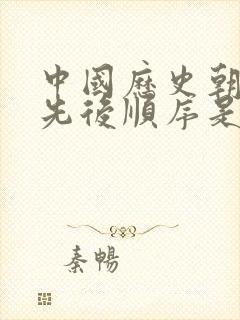 中國歷史朝
先後順序是
秦暢